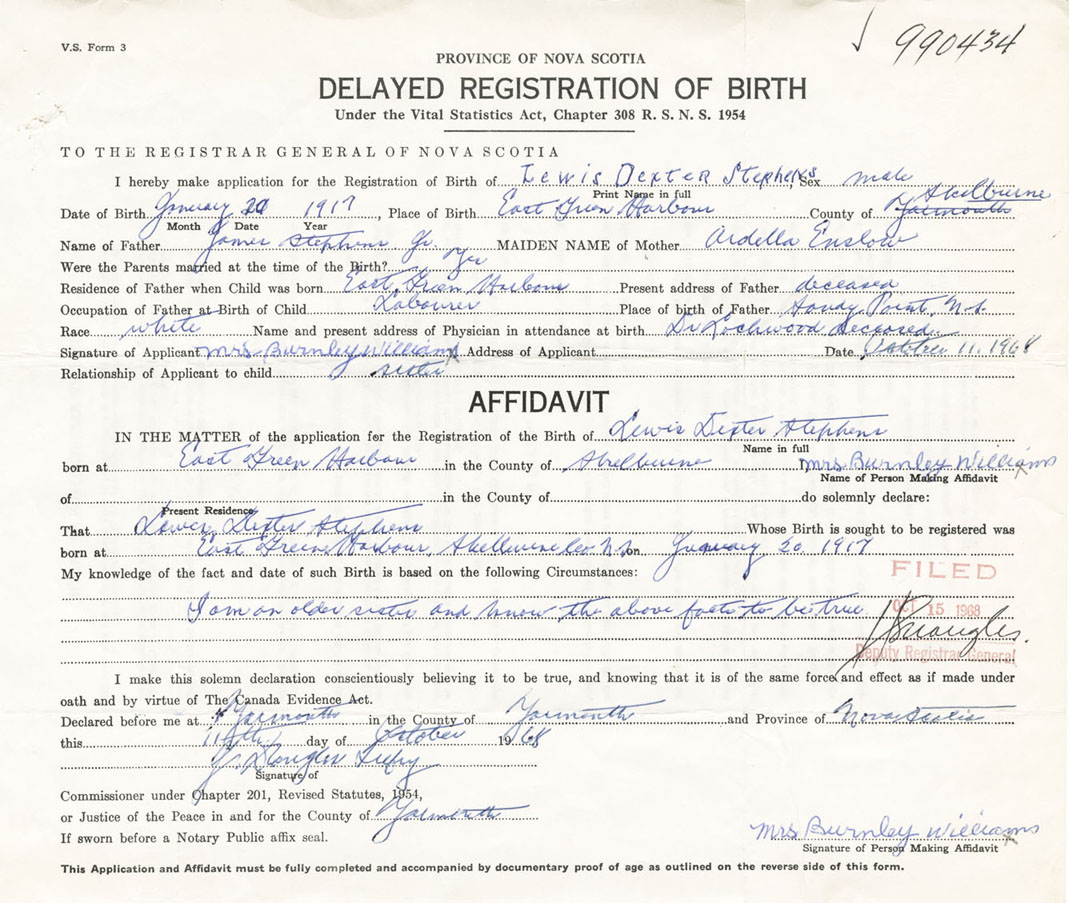 V.S. Form 3
990434
PROVINCE OF NOVA SCOTIA
DELAYED REGISTRATION OF BIRTH
Under the Vital Statistics Act, Chapter 308 R. S. N. S. 1954
TO THE REGISTRAR GENERAL OF NOVA SCOTIA
I hereby make application for the Registration of Birth of Lewis Dexter Stephens, Sex male
Print Name in full
Shelburne
Date of Birth January 20 1917, Place of Birth East Green Harbour, County of Yarmouth
Month Date Year
Name of Father James Stephens Jr. MAIDEN NAME of Mother Ardella Enslow
Were the Parents married at the time of the Birth? Yes
Residence of Father when Child was born East Green Harbour Present address of Father deceased
Occupation of Father at Birth of Child Labourer Place of birth of Father Sandy Point, N.S.
Race white Name and present address of Physician in attendance at birth Dr Lockwood deceased
Signature of Applicant Mrs. Burnley Williams Address of Applicant Date October 11, 1968
Relationship of Applicant to child sister
AFFIDAVIT
IN THE MATTER of the application for the Registration of the Birth of Lewis Dexter Stephens
Name in full
born at East Green Harbour in the County of Shelburne Mrs. Burnley Williams
Name of Person Making Affidavit
of in the County of do solemnly declare:
Present Residence
That Lewis Dexter Stephens Whose Birth is sought to be registered was
born at East Green Harbour, Shelburne Co. N.S. on January 20 1917
My knowledge of the fact and date of such Birth is based on the following Circumstances:
FILED
I am an older sister and know the above facts to be true.
OCT 15 1968
Deputy Registrar General
I make this solemn declaration conscientiously believing it to be true, and knowing that it is of the same force and effect as if made under
oath and by virtue of The Canada Evidence Act.
Declared before me at Yarmouth in the County of Yarmouth and Province of Nova Scotia
this 11th day of October 1968
Signature of
Commissioner under Chapter 201, Revised Statutes, 1954,
or Justice of the Peace in and for the County of Yarmouth
If sworn before a Notary Public affix seal.
Mrs Burnley Williams
Signature of Person Making Affidavit
This Application and Affidavit must be fully completed and accompanied by documentary proof of age as outlined on the reverse side of this form.